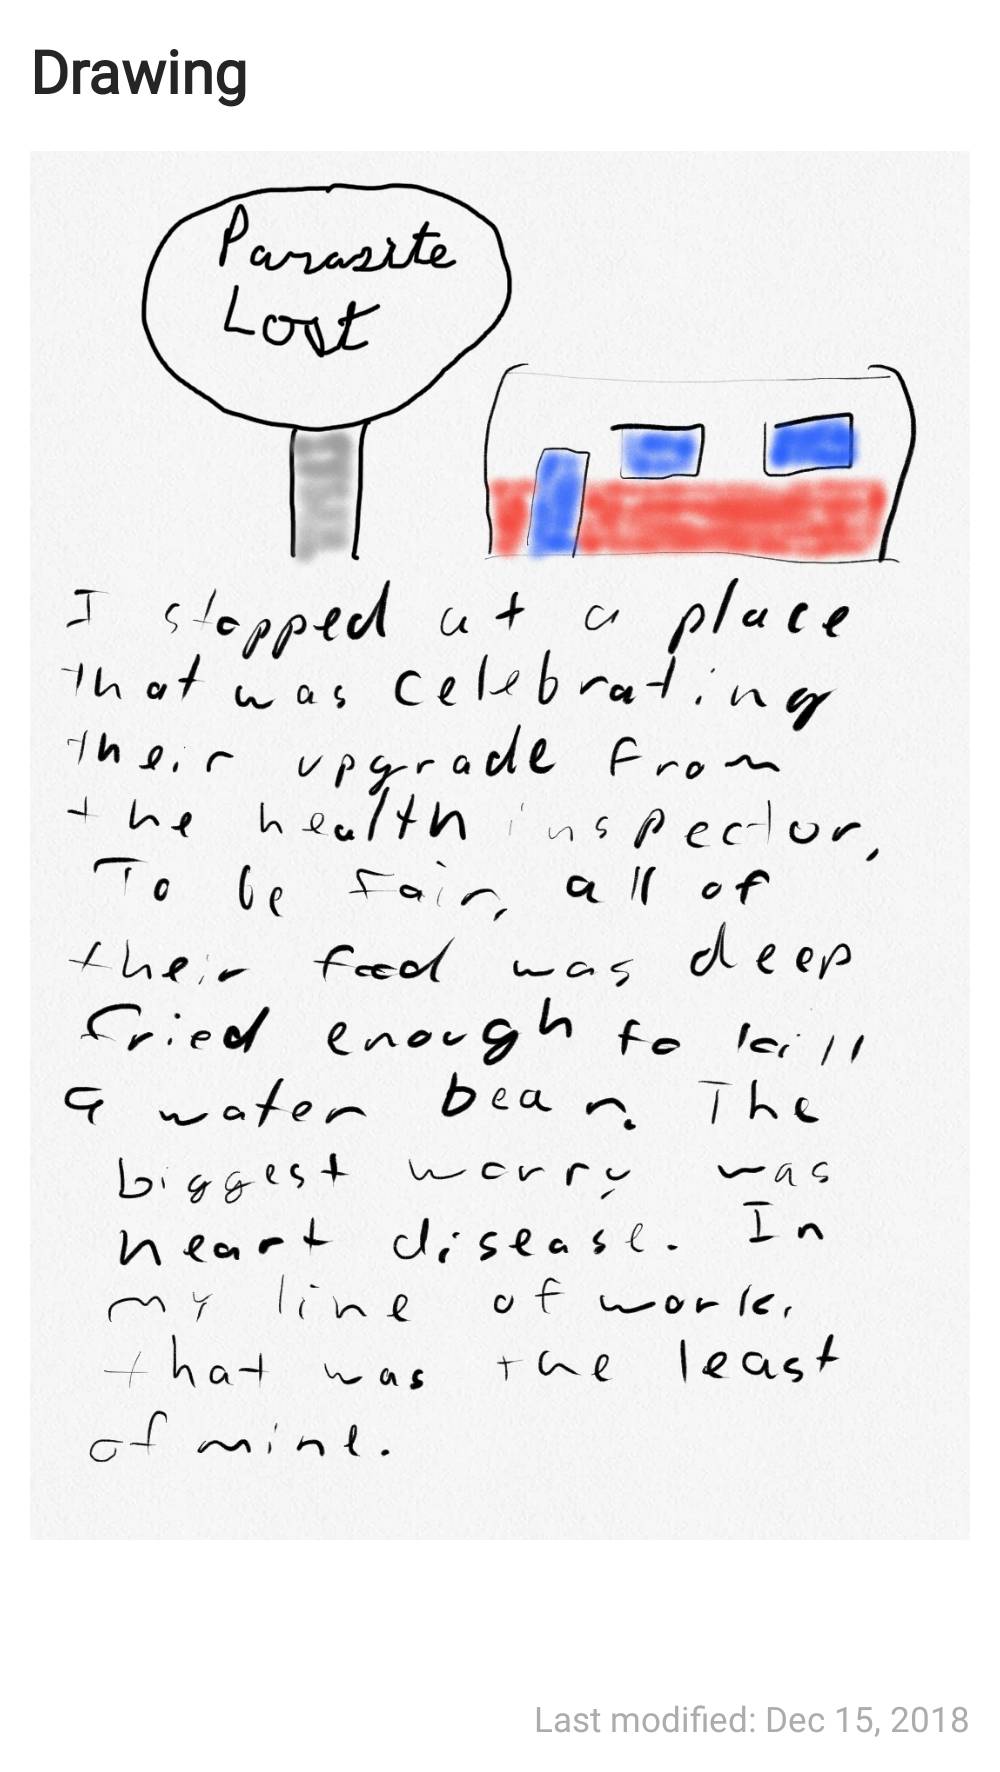 Drawing
Parasite
Lost
I stopped at a place
that was celebrating
their upgrade from
the health inspector,
To be fair, all of
their food was deep
fried enough to kill
a water bear. The
biggest worry was
heart disease. In
my line of work,
that was the least
of mine.
Last modified: Dec 15, 2018